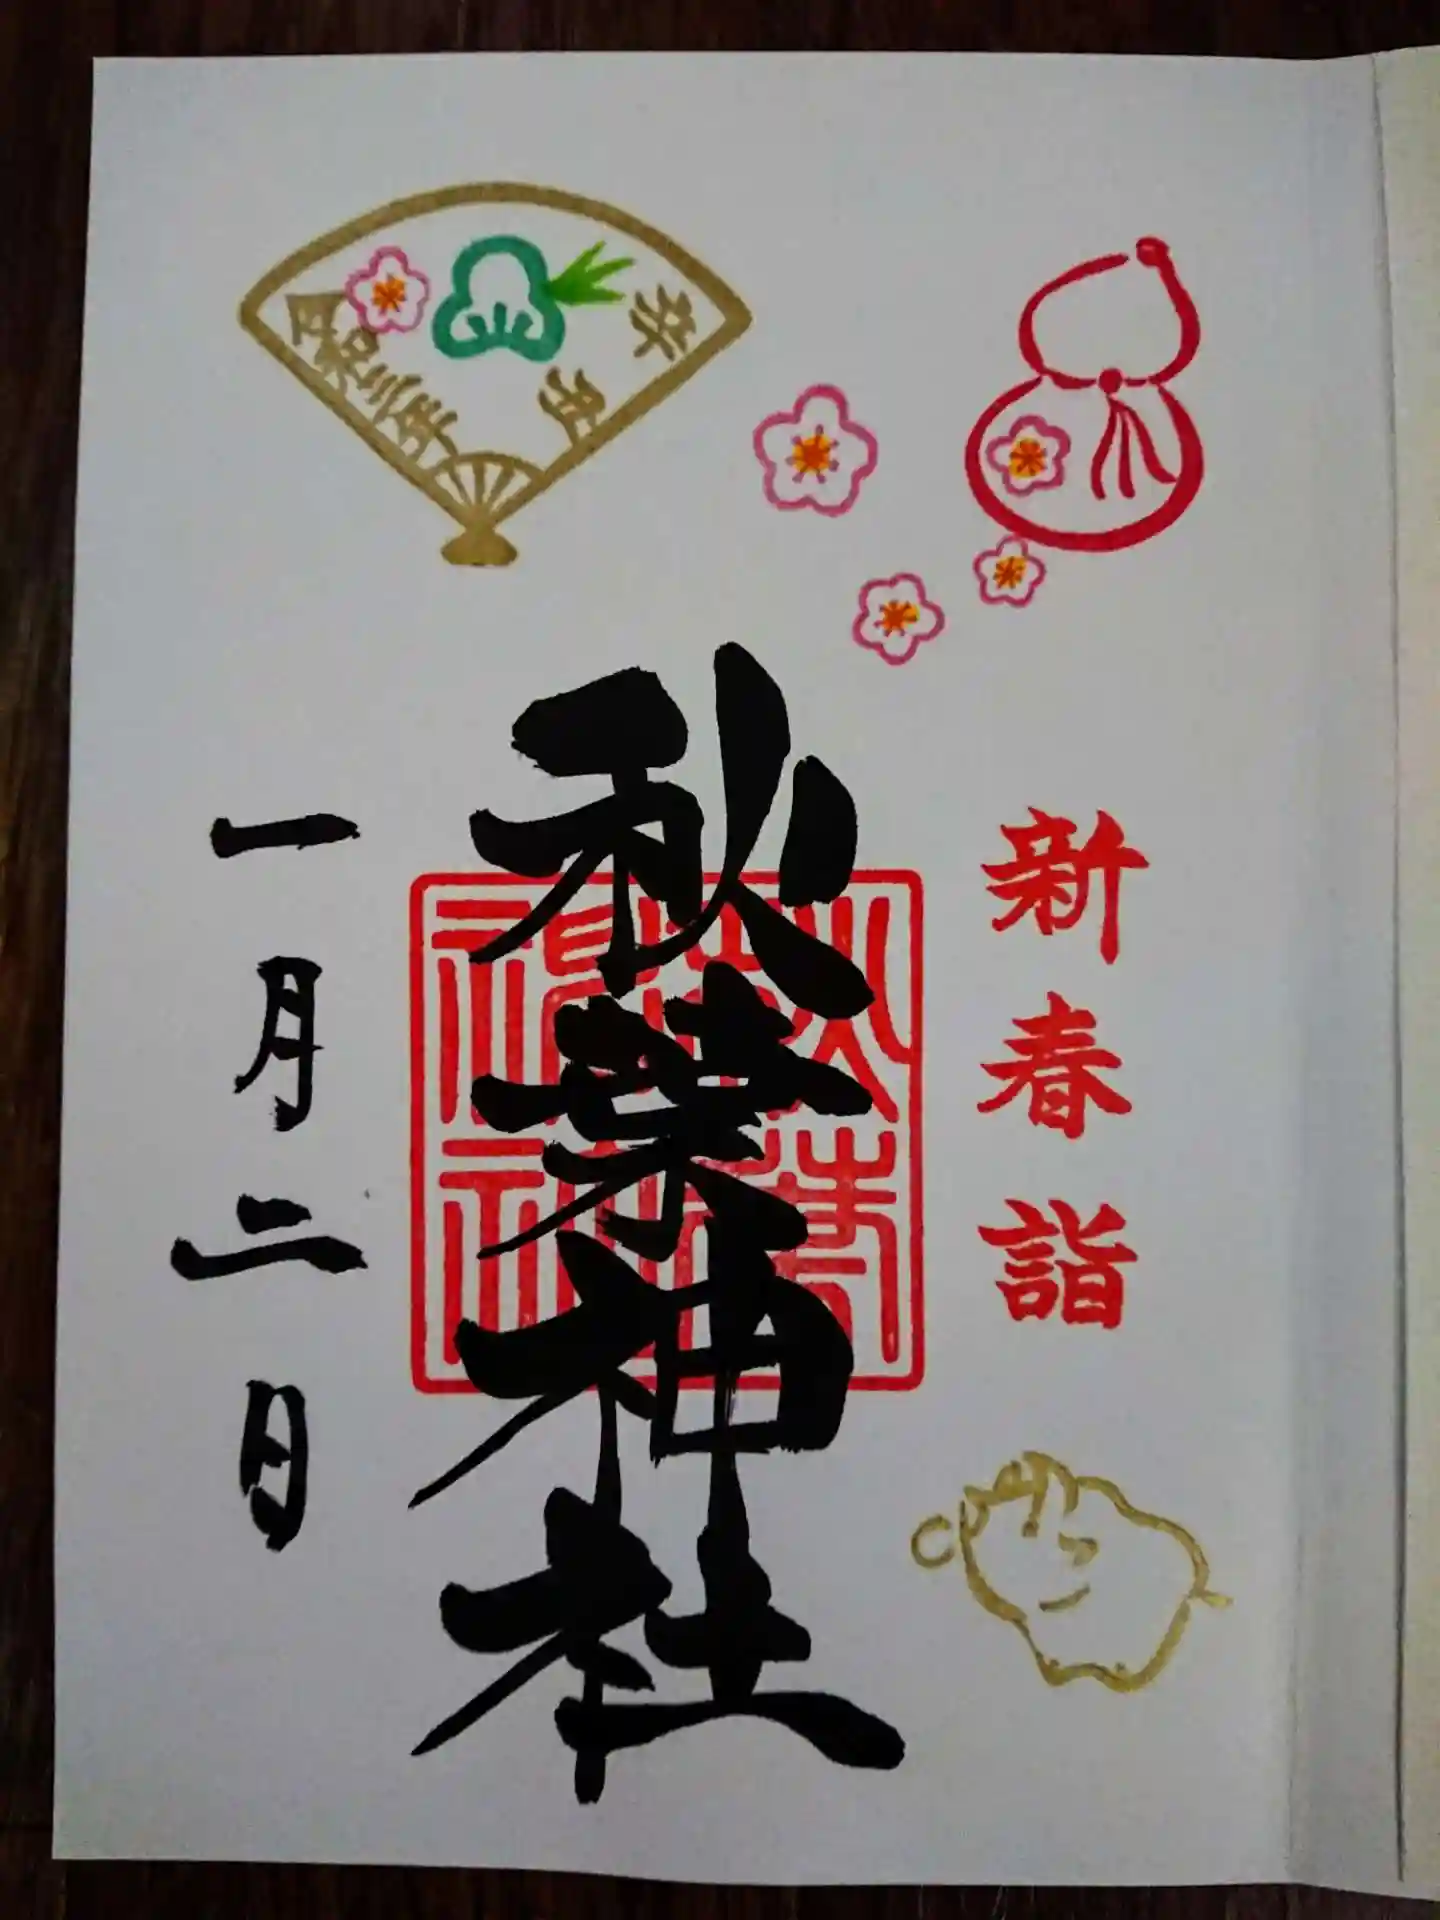 新春詣
秋葉神社
秋葉神社
一月二日
辛丑
令和三年